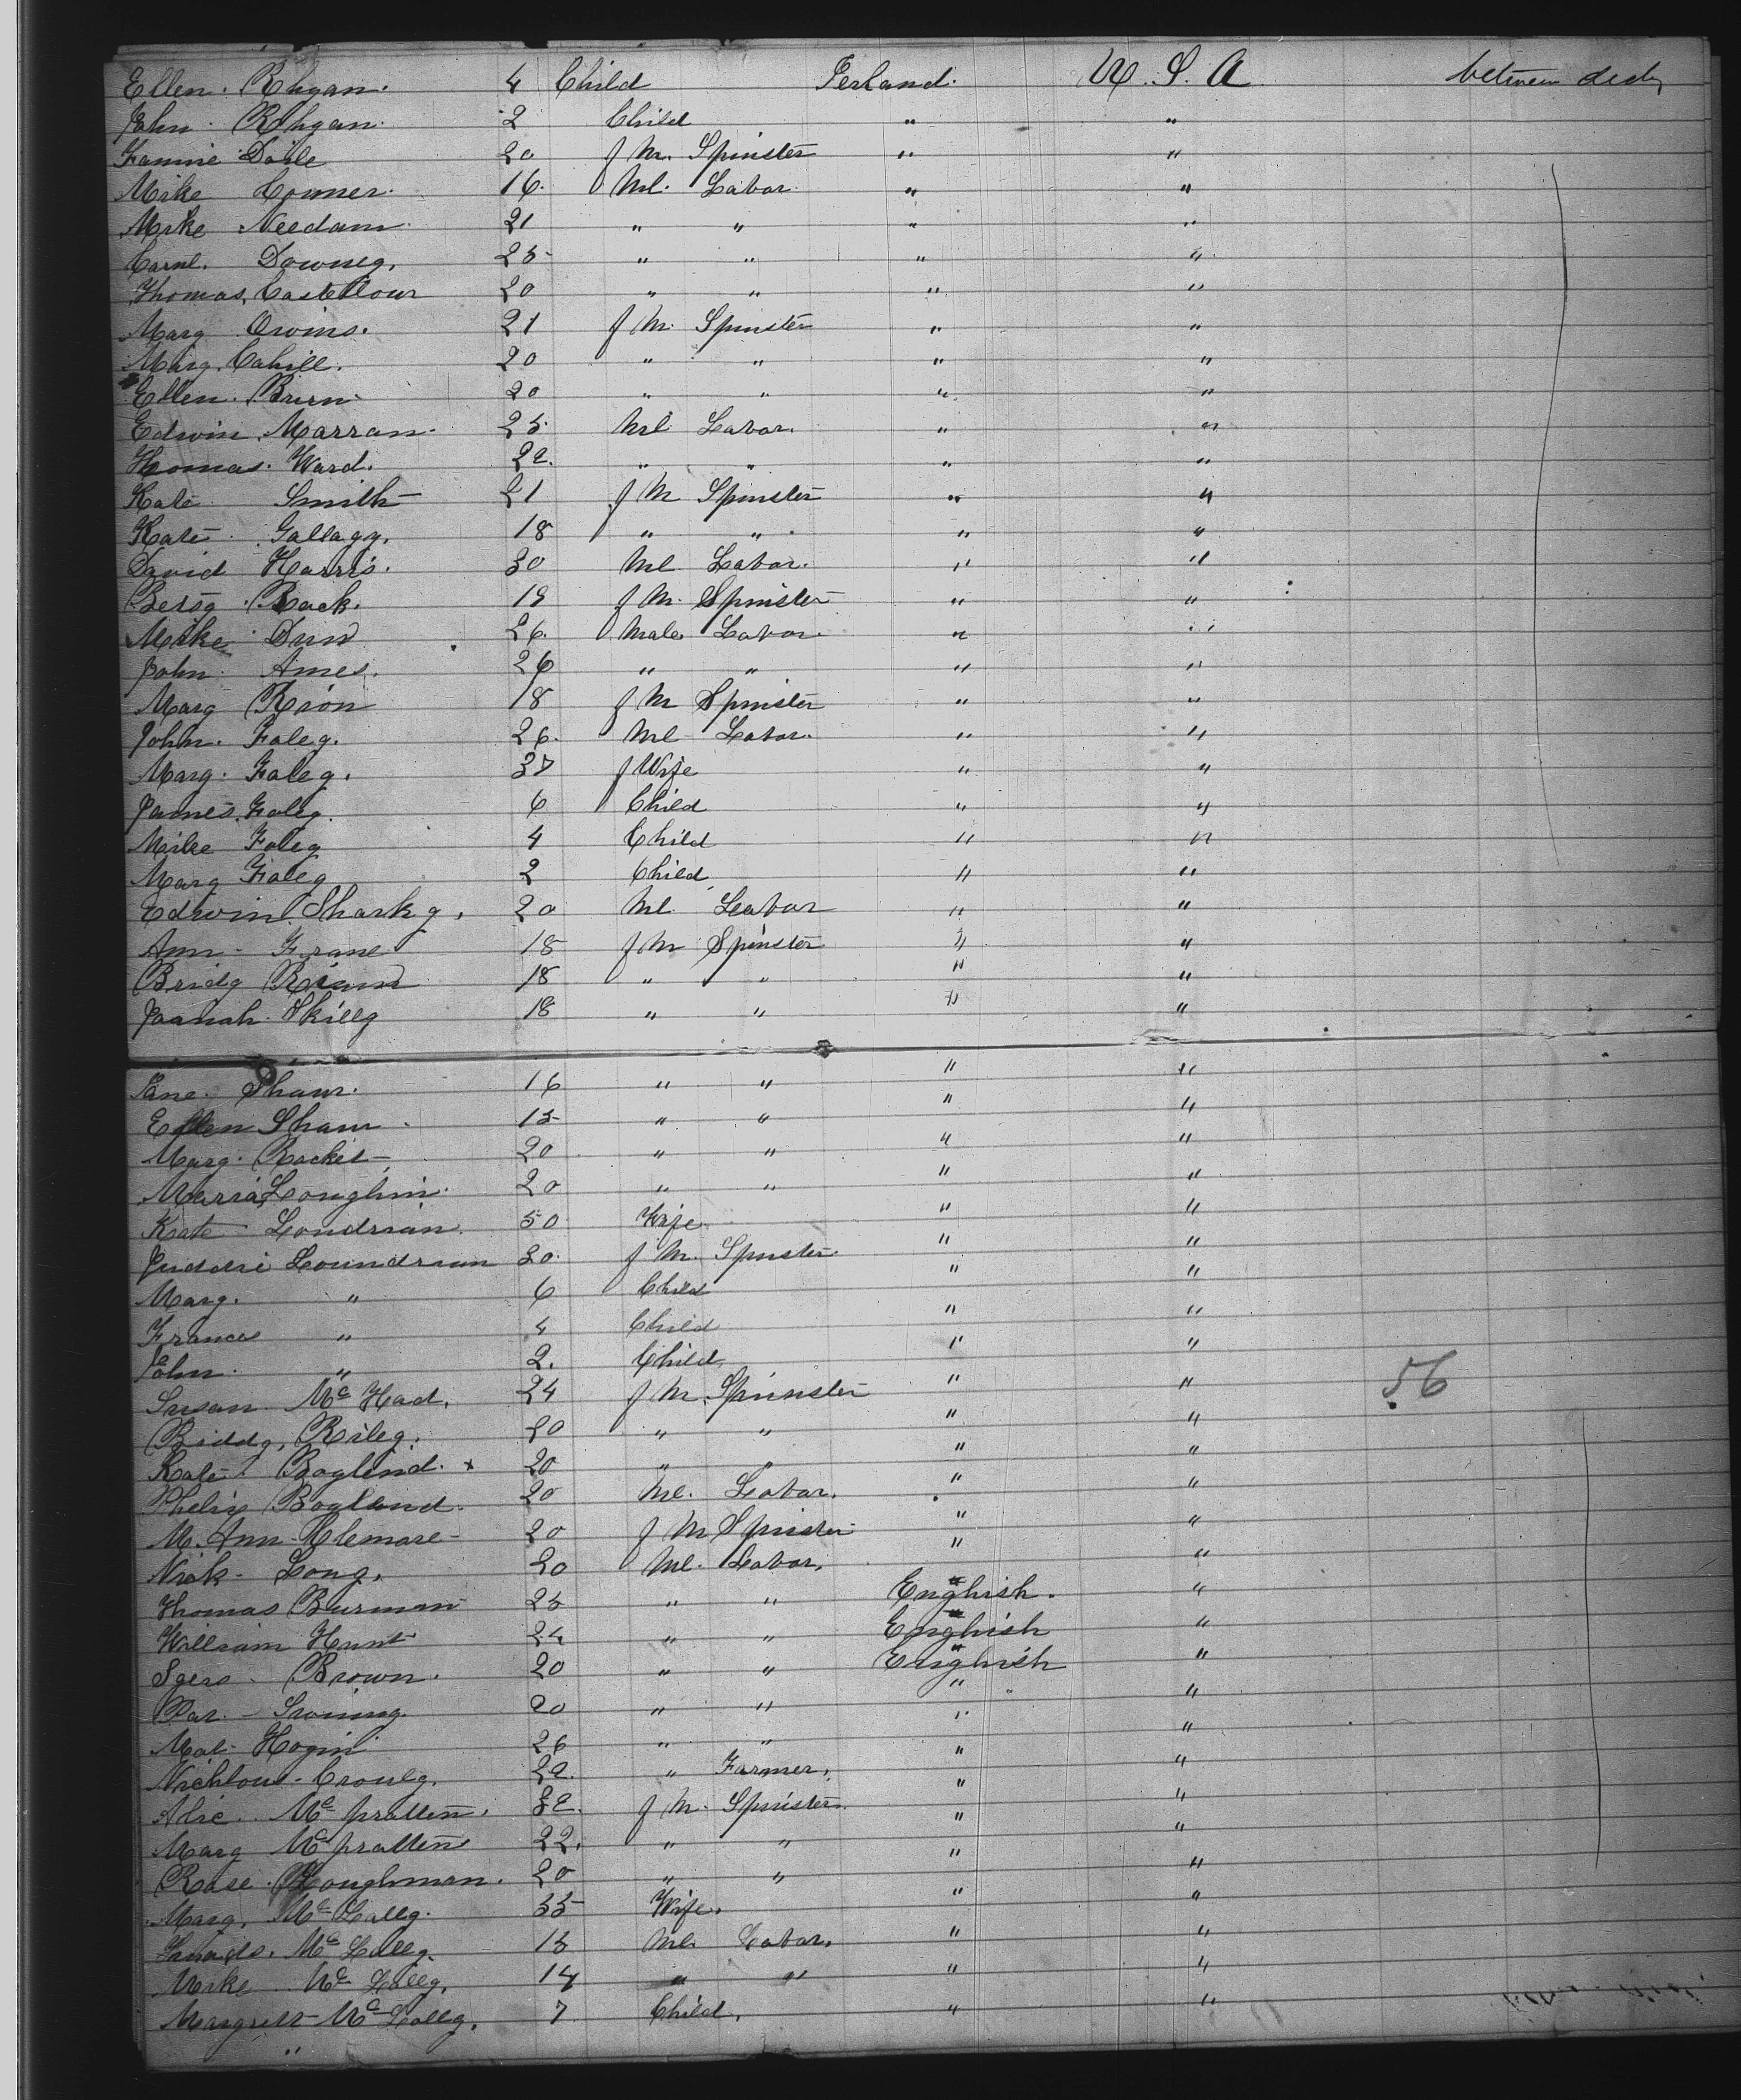 Ellen. Rhgan. 4 Child Ierland. U. S. A between deck
John. Rohgan. 2 Child " "
Fannie Doile 20 f m. Spinster " "
Mike Conner. 16. ml. Labor. " "
Mike Needam. 21 " " " "
Carnl. Downeg. 25 " " " "
Thomas, Castellour 20 " " " "
Marg Owins. 21 f m. Spinster " "
Marg. Cahill. 20 " " " "
Ellen. Brirn 20 " " " "
Edwin. Marran. 25. ml Labor. " "
Thomas. Ward. 22. " " " "
Kate Smith 21 f m Spinster " "
Kate Gallagg. 18 " " " "
David Harris. 30 ml Labor. " "
Betsg. Rack. 19 f m. Spinster " "
Mike Dunn 26. male Labor. " "
John. Ames. 26 " " " "
Marg Rion 18 f m Spinster " "
John. Foleg. 26. ml Labor. " "
Marg. Foleg. 37 f Wife " "
James. Foleg. 6 Child " "
Mike Foleg 4 Child " "
Marg Foleg 2 Child " "
Edwin Sharkg. 20 ml Labor " "
Ann Frane 18 f m Spinster " "
Bridg Riann 18 " " " "
Joanah. Skillg 18 " " " "
Jane. Shaw. 16 " " " "
Ellen Shaw. 15 " " " "
Marg. Racket 20 " " " "
Maria, Loughin. 20 " " " "
Kate Londrian. 50 Wife " "
Juddie Loundraun 20. f m. Spinster. " "
Marg. " 6 Child " "
Frances " 4 Child " "
John. " 2. Child " "
Susan Mc Had. 24 f m. Spinnster " " 56
Biddg, Rileg. 20 " " " "
Kate Boglend. x 20 " " " "
Phelix Bogland. 20 ml. Labor. " "
M. Ann Clemare 20 f m Spinster " "
Nick Long. 20 ml. Labor. " "
Thomas Burman 25 " " Enghish. "
William Hunt 24 " " Enghish "
Sgers Brown. 20 " " Enghish "
Par. Sroning. 20 " " " "
Mat Hogin 26 " " " "
Nichlous Crouleg. 22. " Farmer. " "
Alic. Mc pratten. 32. f m. Spinster. " "
Marg Mc pratten 22. " " " "
Rose. Houghman. 20 " " " "
Marg. Mc Lallg. 35 Wife. " "
Mc Lallg. 15 ml. Labor. " "
Mike Mc Lallg. 14 " " " "
Margrett Mc Lallg. 7 Child. " "
"